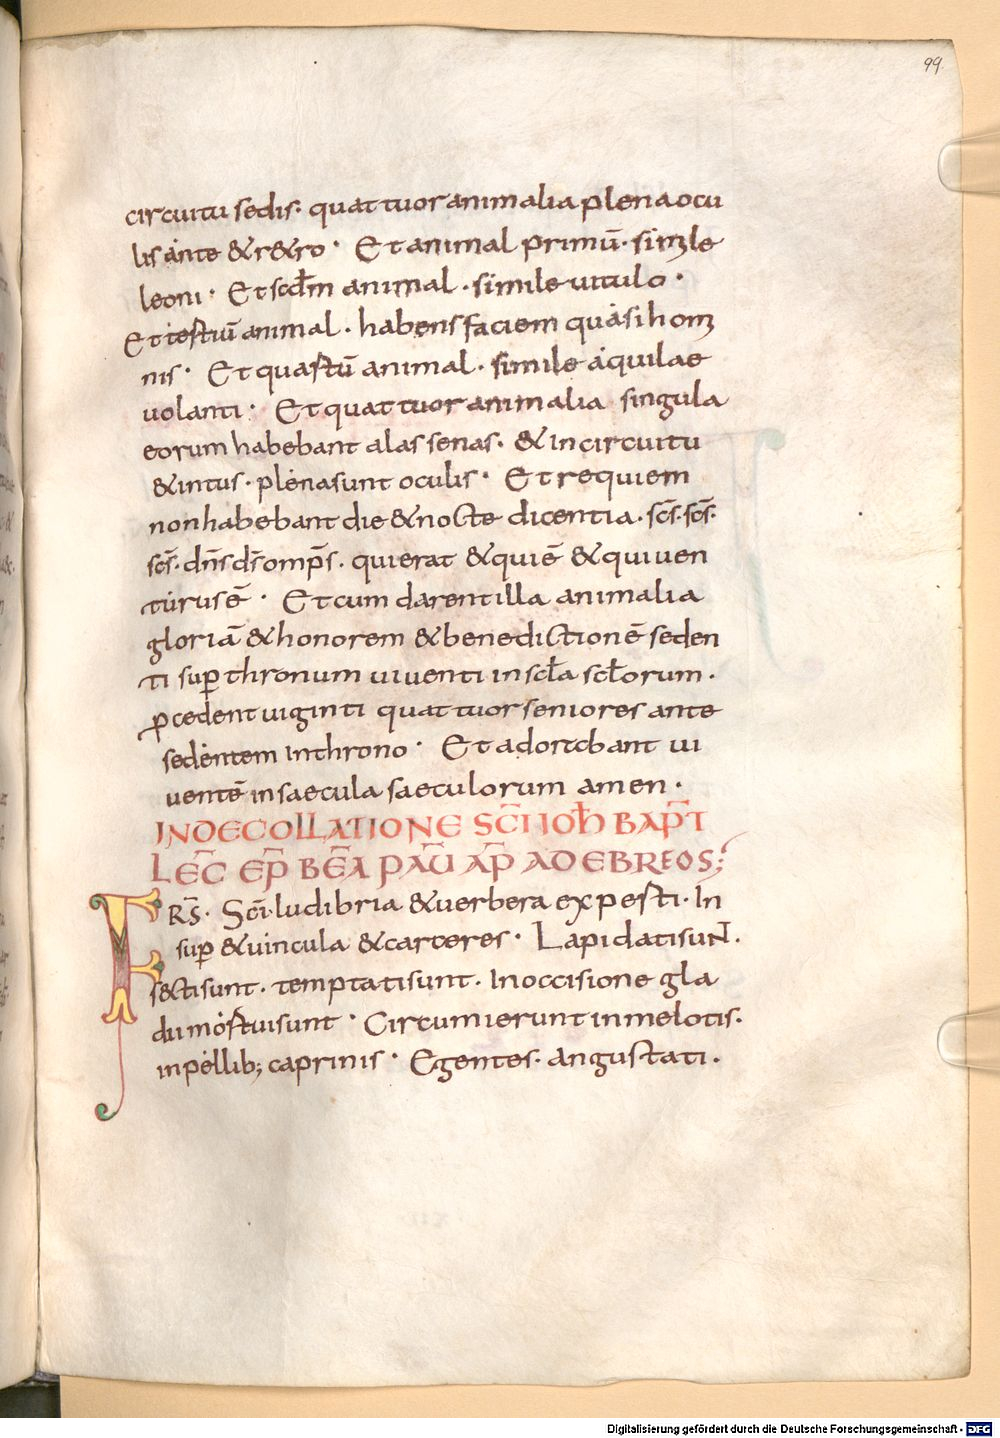 99
circuitu sedis· quattuor animalia plena ocu
lis ante & r&ro· Et animal primū· simile
leoni· Et scdm̄ animal· simile uitulo·
Et tertiū animal· habens faciem quasi homi
nis· Et quartū animal· simile aquilae
uolanti· Et quattuor animalia singula
eorum habebant alas senas· & in circuitu
& intus· plena sunt oculis· Et requiem
non habebant die & nocte dicentia· sc̄s· sc̄s·
sc̄s· dn̄s ds̄ omp̄s· qui erat & qui ē & qui uen
turus ē· Et cum darent illa animalia
gloriā & honorem & benedictionē seden
ti suꝑ thronum uiuenti in scl̄a scl̄orum·
ꝓcedent uiginti quattuor seniores ante
sedentem in throno· Et adorabant ui
uentē in saecula saeculorum amen·
IN DECOLLATIONE SC̄I IOH̄ BAP̄T
LEC̄ EP̄ BEĀ PAŪ AP̄ AD EBREOS;
FRS̄· Sc̄i ludibria & uerbera experti· In
suꝑ & uincula & carceres· Lapidati sunt·
secti sunt· temptati sunt· In occisione gla
dii mortui sunt· Circumierunt in melotis·
in pellib; caprinis· Egentes· angustati·
Digitalisierung gefördert durch die Deutsche Forschungsgemeinschaft - DFG